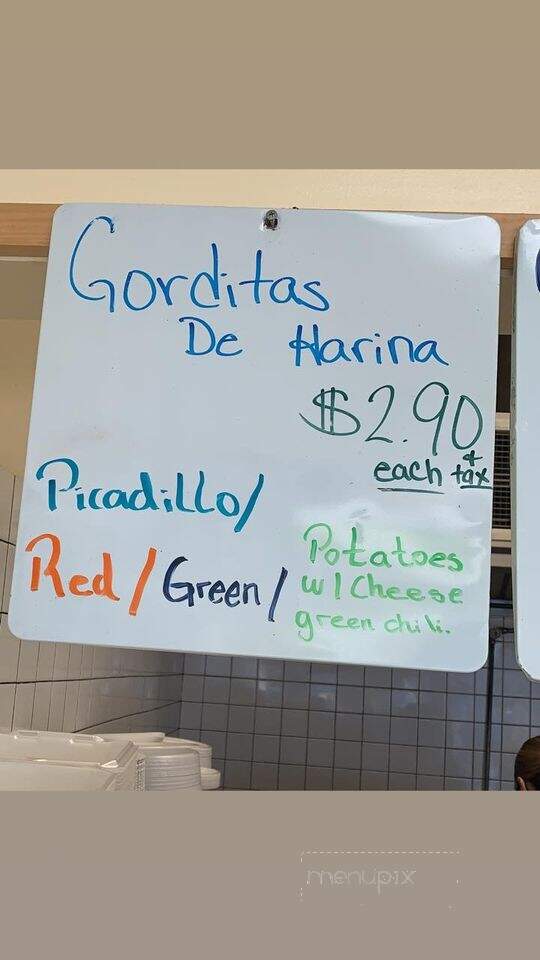 Gorditas
De Harina
$2.90
each + tax
Picadillo/
Red / Green /
Potatoes
w/ Cheese
green chili.
menupix